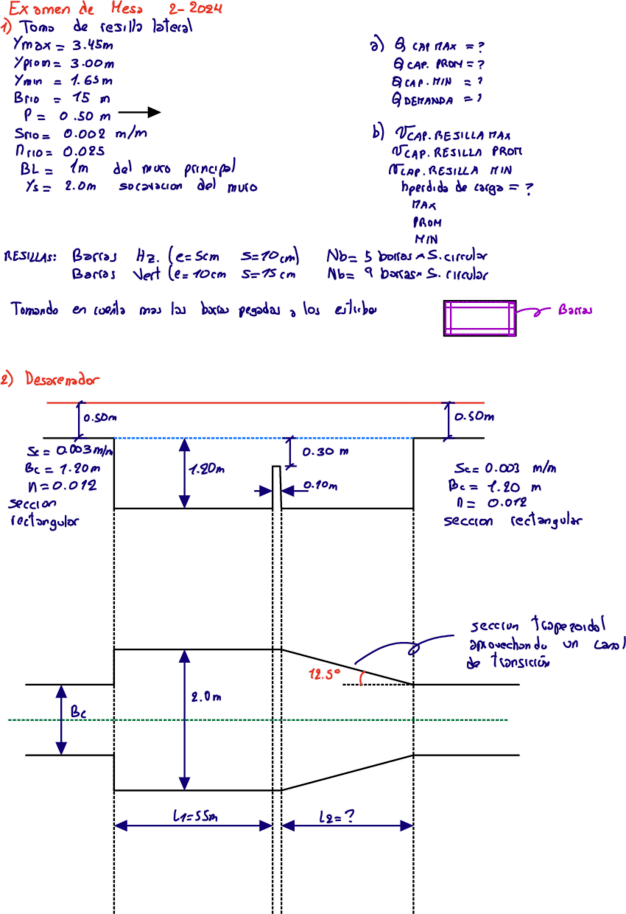 Examen de Mesa 2-2024
1) Toma de resilla lateral
Ymax = 3.45m
Yprom = 3.00m
Ymin = 1.65m
Brio = 15 m
P = 0.50 m
Srio = 0.002 m/m
nrio = 0.025
BL = 1m del muro principal
Ys = 2.0m socavacion del muro
a) Q CAP MAX = ?
Q CAP. PROM = ?
Q CAP. MIN = ?
Q DEMANDA = ?
b) V CAP. RESILLA MAX
V CAP. RESILLA PROM
V CAP. RESILLA MIN
hperdida de carga = ?
MAX
PROM
MIN
RESILLAS: Barras Hz. (e=5cm S=10cm) Nb= 5 barras ^ S. circular
Barras Vert (e=10cm S=15cm Nb= 9 barras ^ S. circular
Tomando en cuenta mas las barras pegadas a los estribos
Barras
2) Desarenador
0.50m
0.50m
Sc=0.003m/m
Bc=1.20m
n=0.012
seccion
rectangular
1.20m
0.30 m
0.10m
Sc=0.003 m/m
Bc= 1.20 m
n= 0.012
seccion rectangular
seccion trapezoidal
aprovechando un canal
de transición
12.5°
Bc
2.0m
L1=55m
L2=?